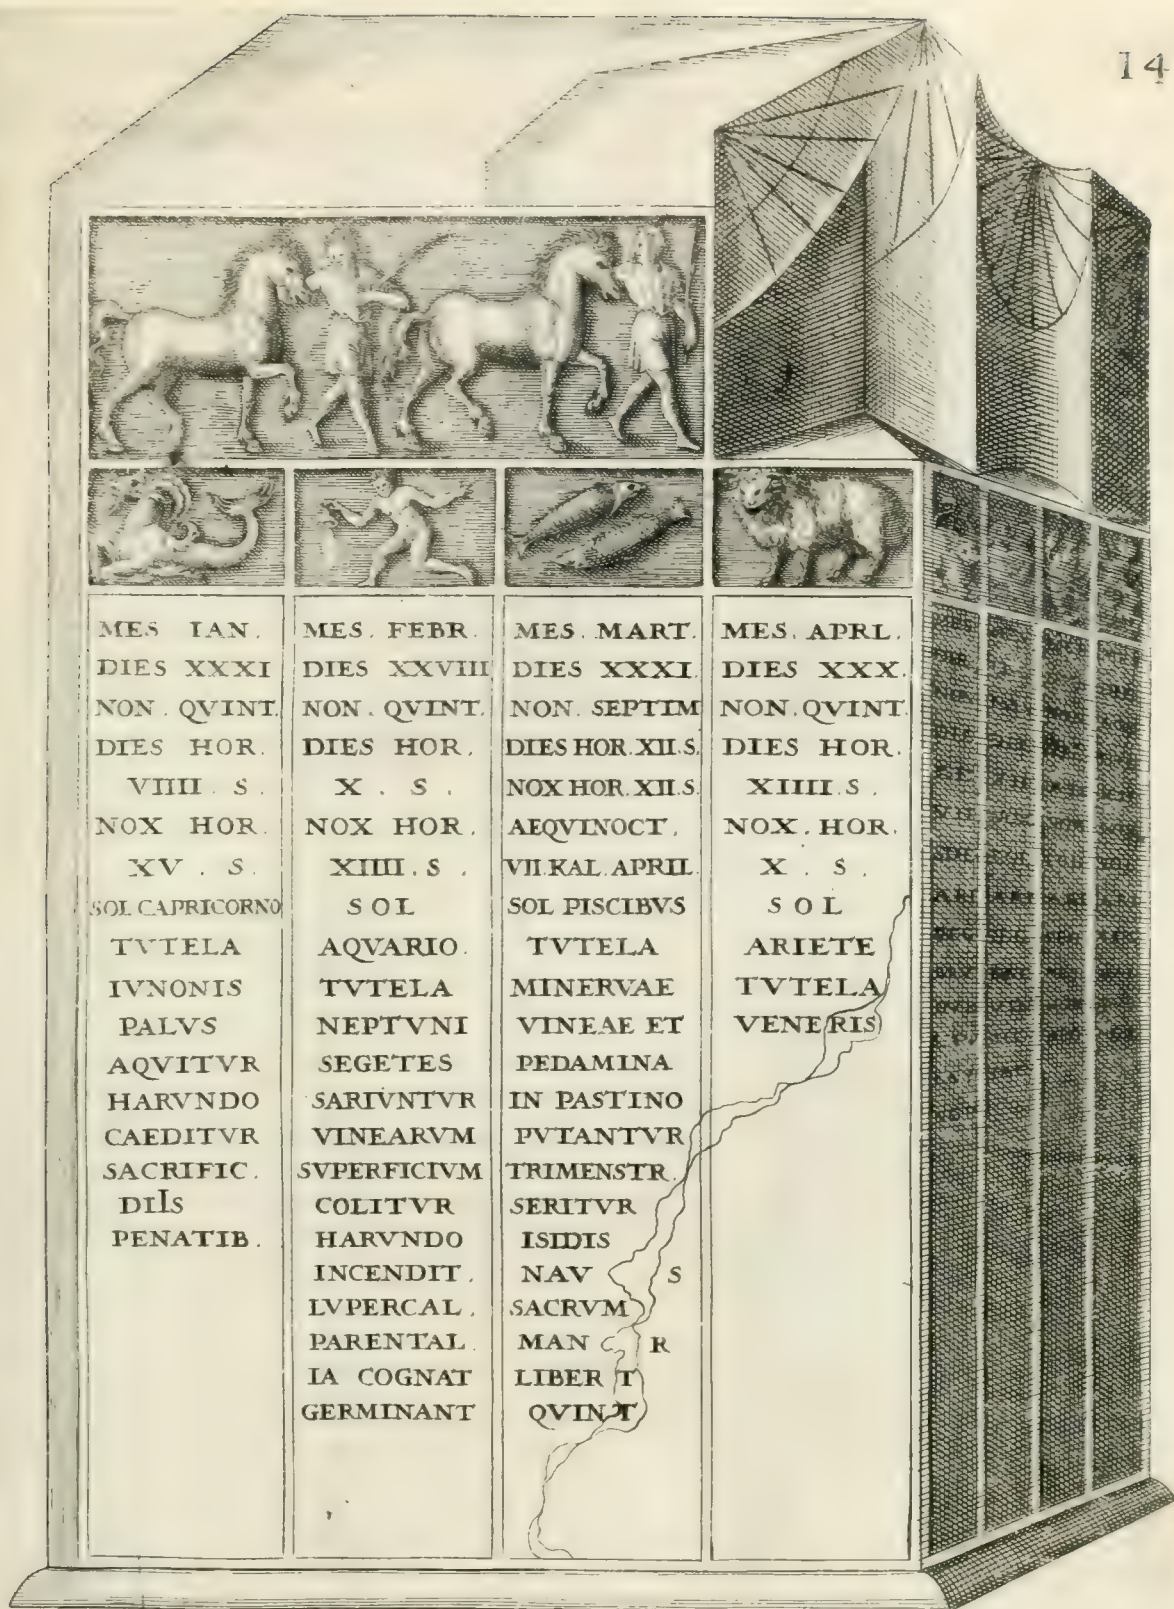 14
MES IAN.
DIES XXXI
NON. QVINT.
DIES HOR.
VIIII. S.
NOX HOR.
XV. S.
SOL CAPRICORNO
TVTELA
IVNONIS
PALVS
AQVITVR
HARVNDO
CAEDITVR
SACRIFIC.
DIIS
PENATIB.
MES. FEBR.
DIES XXVIII
NON. QVINT.
DIES HOR.
X. S.
NOX HOR.
XIIII. S.
SOL
AQVARIO.
TVTELA
NEPTVNI
SEGETES
SARIVNTVR
VINEARVM
SVPERFICIVM
COLITVR
HARVNDO
INCENDIT.
LVPERCAL.
PARENTAL.
IA COGNAT
GERMINANT
MES. MART.
DIES XXXI.
NON. SEPTIM
DIES HOR. XII. S.
NOX HOR. XII. S.
AEQVINOCT.
VII. KAL. APRIL.
SOL PISCIBVS
TVTELA
MINERVAE
VINEAE ET
PEDAMINA
IN PASTINO
PVTANTVR
TRIMENSTR.
SERITVR
ISIDIS
NAV S
SACRVM
MAN R
LIBER T
QVINT
MES. APRL.
DIES XXX.
NON. QVINT.
DIES HOR.
XIIII. S.
NOX. HOR.
X. S.
SOL
ARIETE
TVTELA
VENERIS